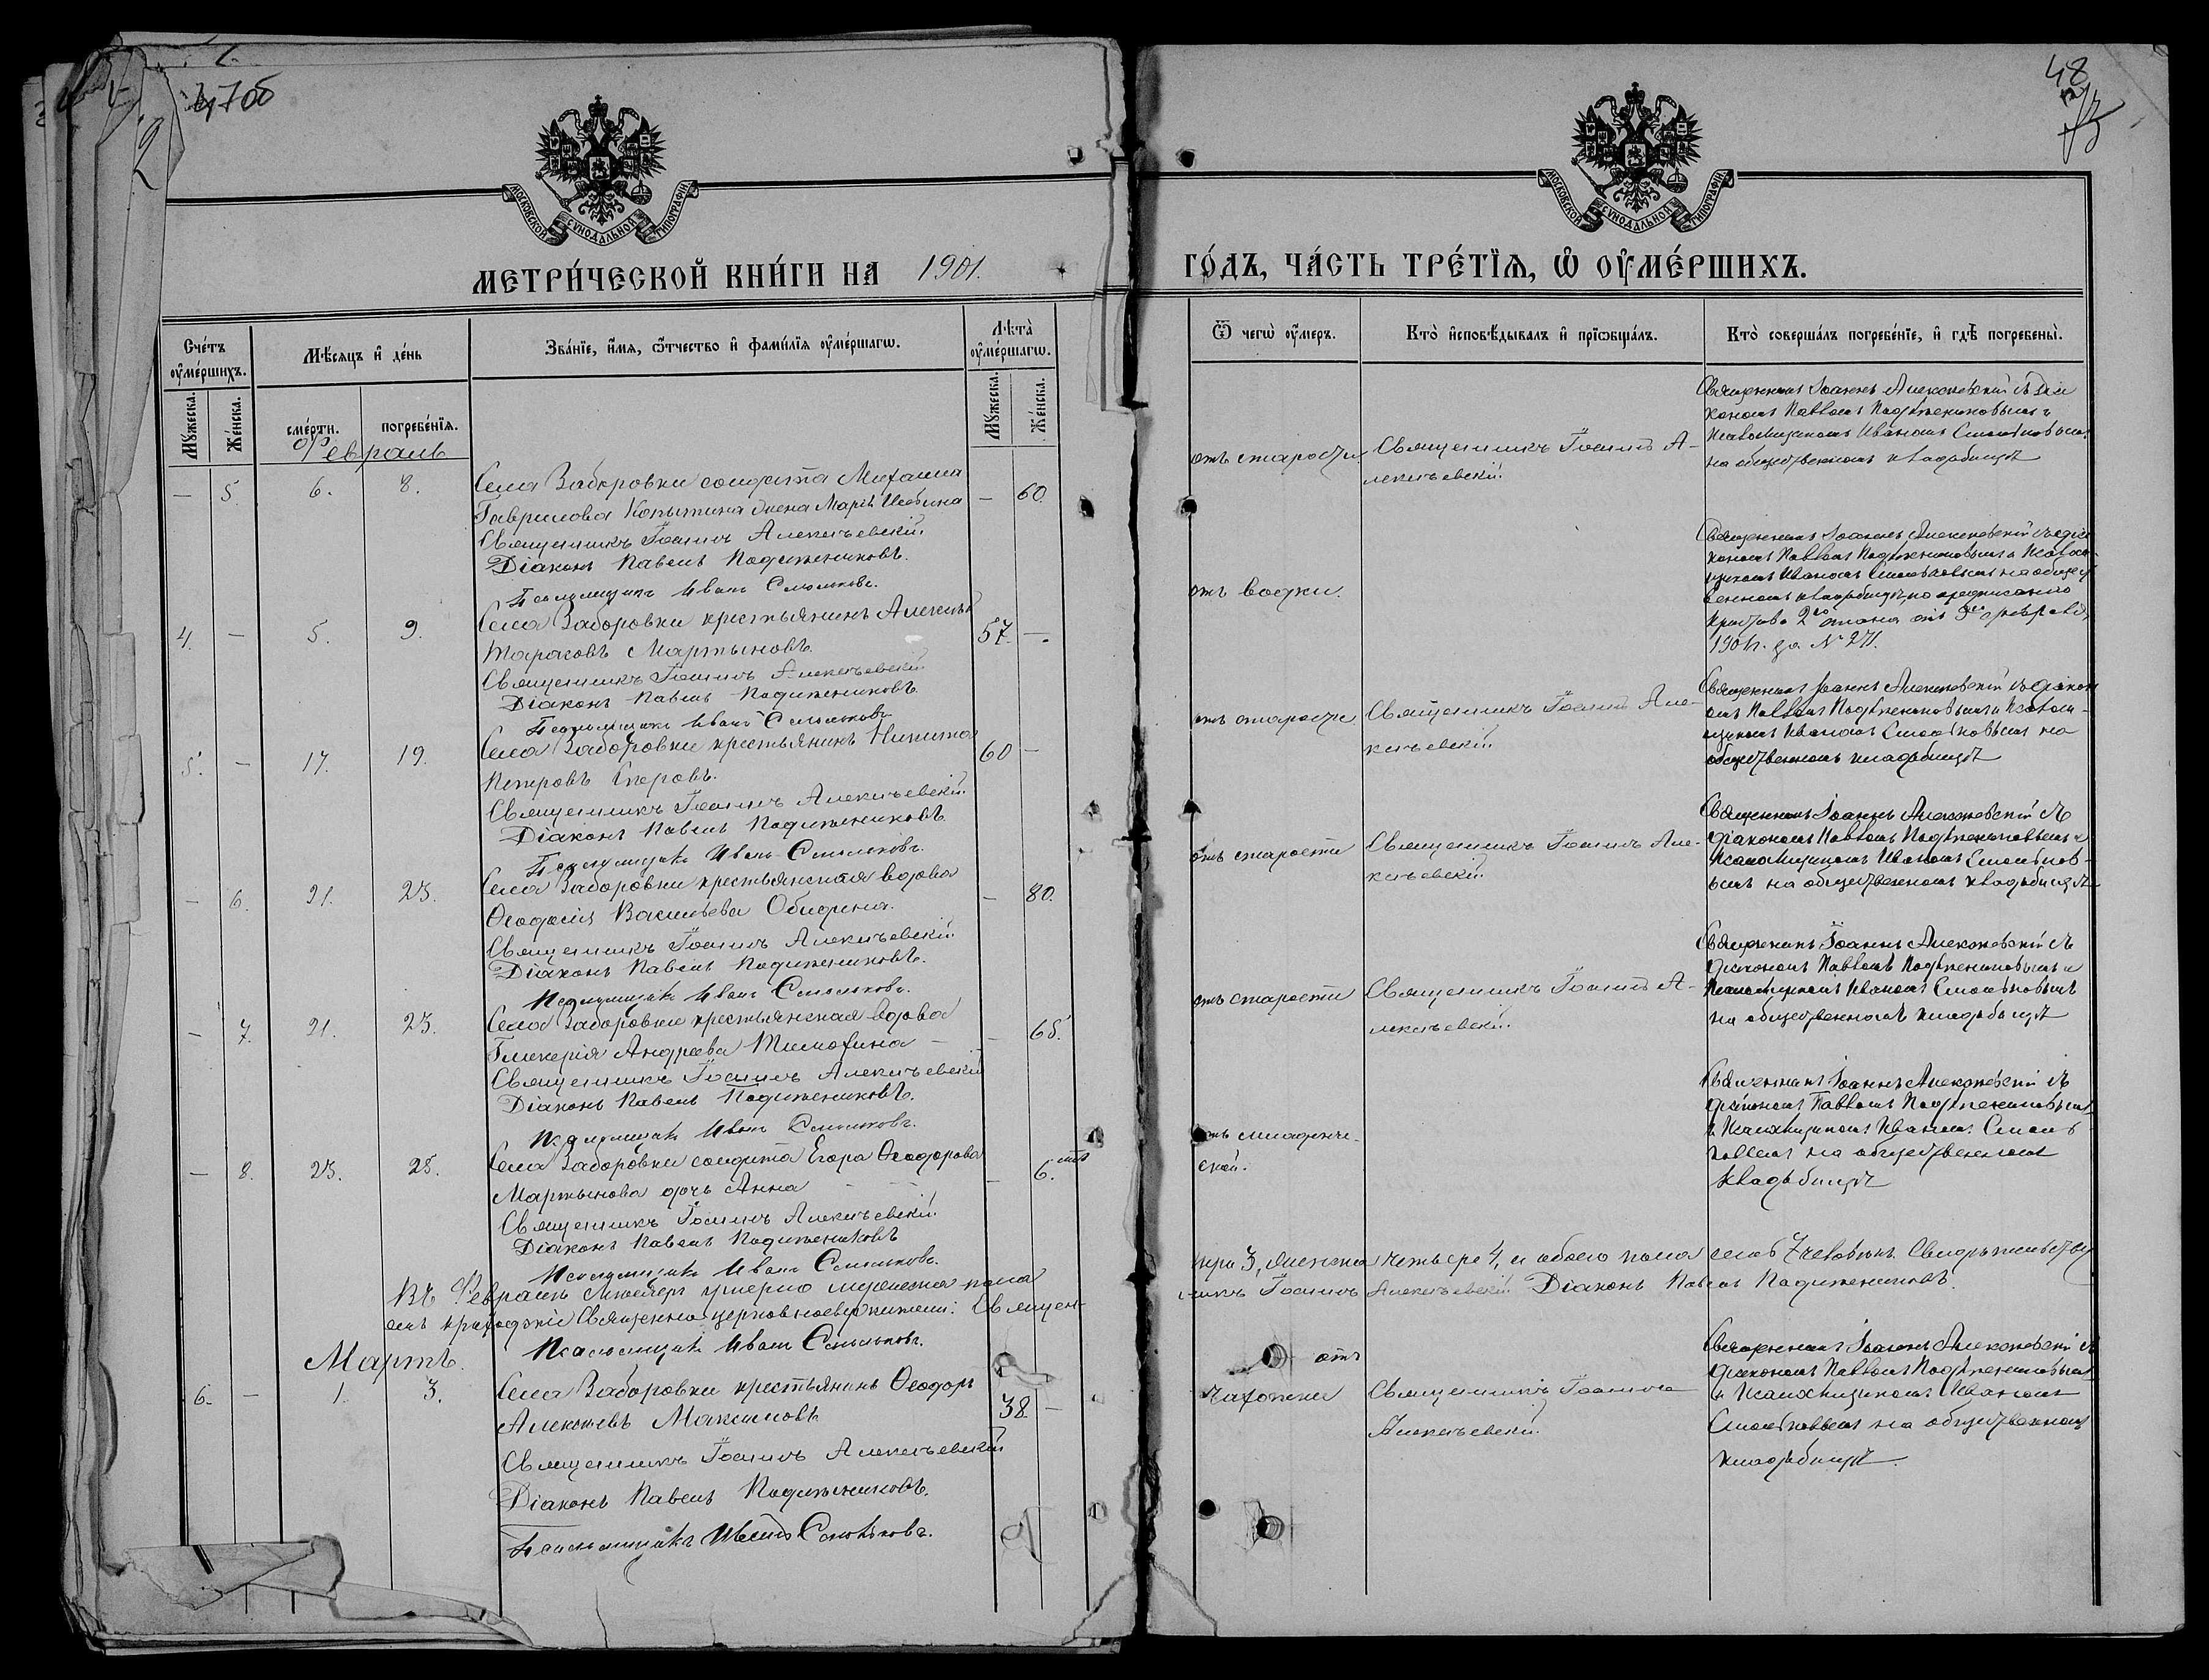 47об
48
МОСКОВСКОЙ СѴНОДАЛЬНОЙ ТИПОГРАФІИ
МОСКОВСКОЙ СѴНОДАЛЬНОЙ ТИПОГРАФІИ
МЕТРИ́ЧЕСКОЙ КНИ́ГИ НА 1901. ГО́ДЪ, ЧА́СТЬ ТРЕ́ТЇѦ, Ѡ ОУ҆МЕ́РШИХЪ.
Сче́тъ оу҆ме́ршихъ.
Мꙋ́жеска.
Же́нска.
Мѣ́сяцъ и҆ де́нь
сме́рти.
погребе́нїѧ.
Зва́нїе, и҆́мѧ, ѻ҆́тчество и҆ фами́лїѧ оу҆ме́ршагѡ.
Лѣ́та̀ оу҆ме́ршагѡ.
Мꙋ́жеска.
Же́нска.
Ѿ чегѡ̀ оу҆́меръ.
Кто̀ и҆сповѣ́дывалъ и҆ прїѡбща́лъ.
Кто̀ соверша́лъ погребе́нїе, и҆ гдѣ̀ погребены̀.
Февраль
— 5. 6. 8. Села Заборовки солдата Михаила — 60.
Гаврилова Копытина жена Марія
Священникъ Іоаннъ Алексѣевскій.
Діаконъ Павелъ Подъяпениковъ.
Псаломщикъ Иванъ Смольковъ.
отъ старости
Священникъ Іоаннъ А-
лексѣевскій.
Священникъ Іоаннъ Алексѣевскій съ діа
кономъ Павломъ и
Псаломщикомъ Иваномъ Смольковымъ
на общественномъ кладбищѣ
4. — 5. 9. Села Заборовки крестьянинъ Алексѣй 57. —.
Тарасовъ Мартыновъ.
Священникъ Іоаннъ Алексѣевскій
Діаконъ Павелъ
Псаломщикъ Иванъ Смольковъ
отъ водки.
Священникъ Іоаннъ Алексѣевскій съ діа
кономъ Павломъ и Псалом-
щикомъ Иваномъ Смольковымъ на общест
венномъ кладбищѣ, по предписанію
Пристава 2го стана отъ 9го февраля
1901 г. за № 271.
5. — 17. 19. Села Заборовки крестьянинъ Никита 60 —
Петровъ Егоровъ.
Священникъ Іоаннъ Алексѣевскій.
Діаконъ Павелъ
Псаломщикъ Иванъ Смольковъ.
отъ старости
Священникъ Іоаннъ Але-
ксѣевскій.
Священникъ Іоаннъ Алексѣевскій съ діакон
омъ Павломъ и Псалом-
щикомъ Иваномъ Смольковымъ на
общественномъ кладбищѣ
— 6. 21. 23. Села Заборовки крестьянская вдова — 80.
Ѳеодосія Васильева Обидина.
Священникъ Іоаннъ Алексѣевскій
Діаконъ Павелъ
Псаломщикъ Иванъ Смольковъ.
отъ старости
Священникъ Іоаннъ Але-
ксѣевскій.
Священникъ Іоаннъ Алексѣевскій съ
діакономъ Павломъ и
Псаломщикомъ Иваномъ Смольков-
ымъ на общественномъ кладбищѣ
— 7. 21. 23. Села Заборовки крестьянская вдова — 65.
Гликерія Андреева Тимохина —
Священникъ Іоаннъ Алексѣевскій
Діаконъ Павелъ
Псаломщикъ Иванъ Смольковъ.
отъ старости
Священникъ Іоаннъ А-
лексѣевскій.
Священникъ Іоаннъ Алексѣевскій съ
діакономъ Павломъ и
Псаломщикомъ Иваномъ Смольковымъ
на общественномъ кладбищѣ
— 8. 23. 25. Села Заборовки солдата Егора Ѳеодорова — 6.
Мартынова дочь Анна
Священникъ Іоаннъ Алексѣевскій.
Діаконъ Павелъ
Псаломщикъ Иванъ Смольковъ.
отъ младенче-
ской.
Священникъ Іоаннъ Алексѣевскій съ
діакономъ Павломъ
и Псаломщикомъ Иваномъ Смоль-
ковымъ на общественномъ
кладбищѣ
Въ Февралѣ мѣсяцѣ умерло мужеска пола три 3, женска четыре 4, и обоего пола семь 7 человѣкъ. Свидѣтельству
емъ приходскіе Священно-церковнослужители: Священ-
никъ Іоаннъ Алексѣевскій Діаконъ Павелъ
Псаломщикъ Иванъ Смольковъ.
Мартъ.
6. — 1. 3. Села Заборовки крестьянинъ Ѳеодоръ 38. —
Алексѣевъ Максимовъ
Священникъ Іоаннъ Алексѣевскій
Діаконъ Павелъ
Псаломщикъ Иванъ Смольковъ.
отъ
чахотки
Священникъ Іоаннъ
Алексѣевскій.
Священникъ Іоаннъ Алексѣевскій съ
діакономъ Павломъ
и Псаломщикомъ Иваномъ
Смольковымъ на общественномъ
кладбищѣ.